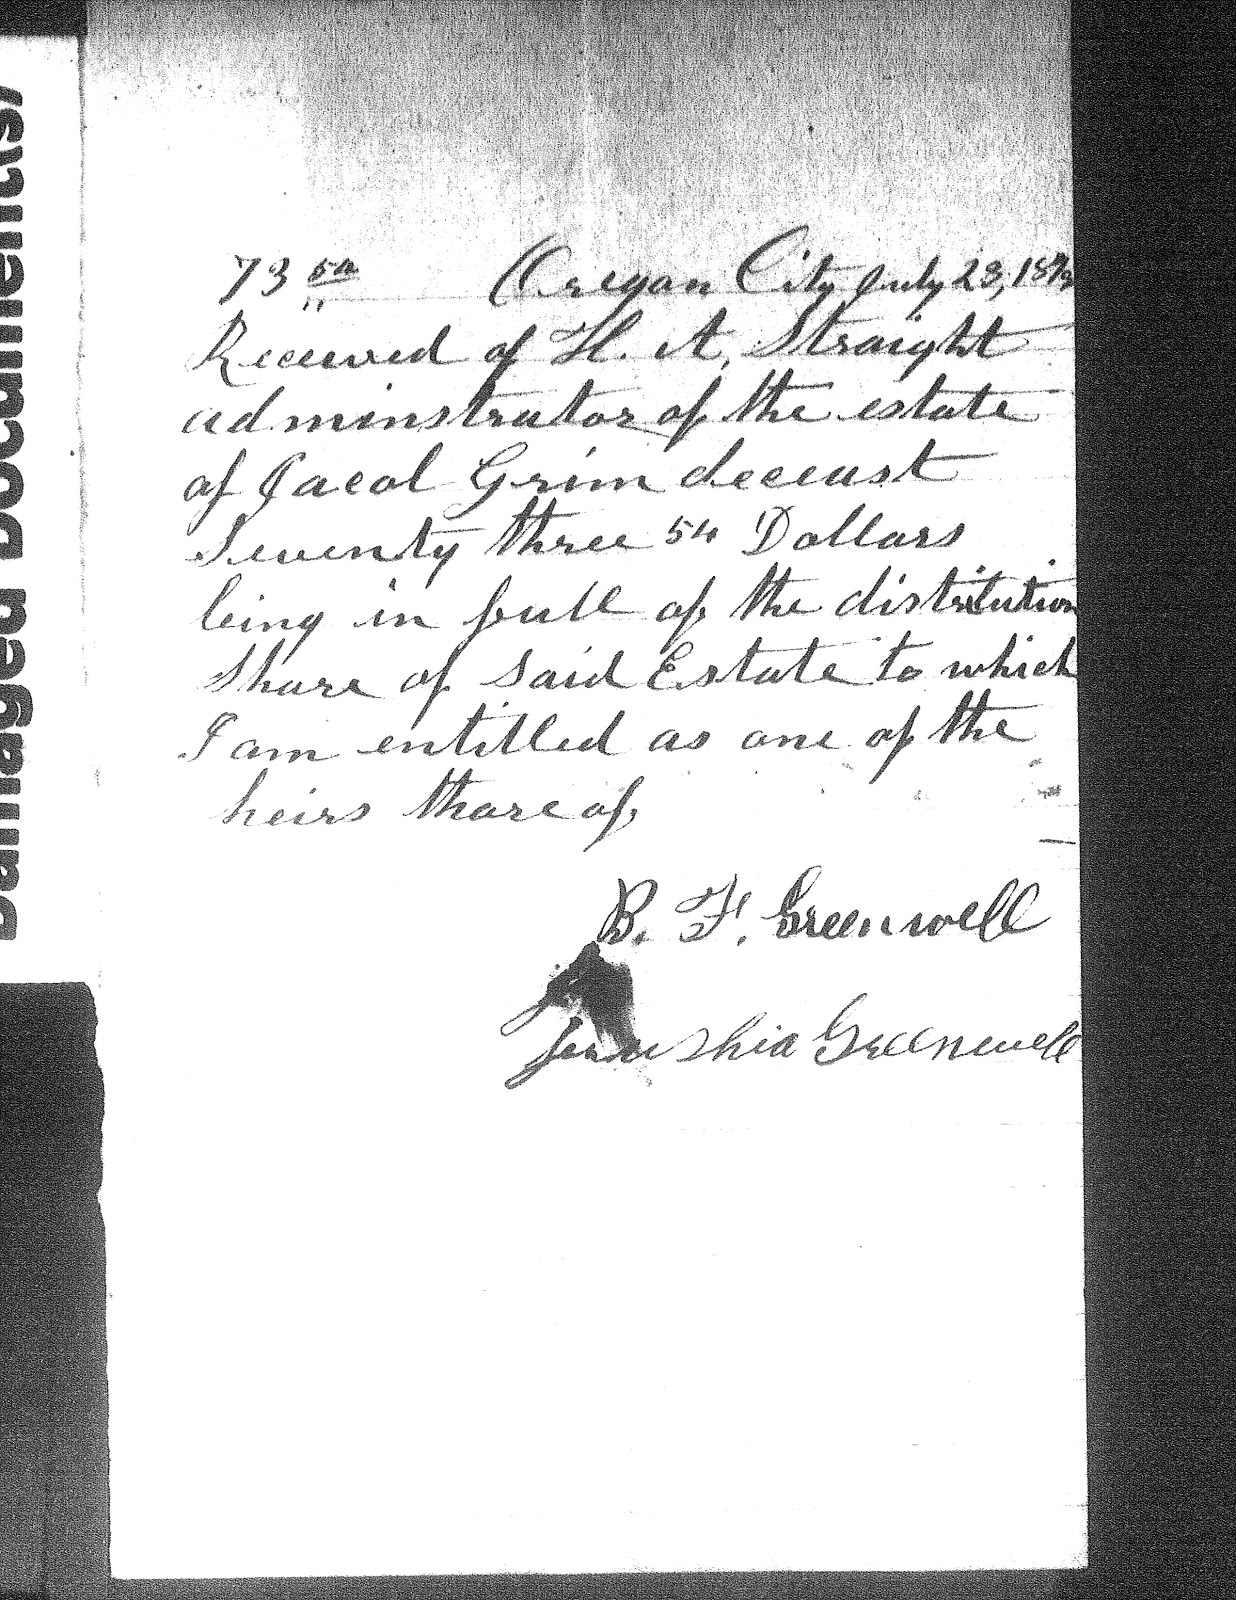 Damaged Document(s)
73 54 Oregon City July 23, 187
Received of H. A. Straight
adminstrator of the estate
of Jacob Grim deceast
Seventy three 54 Dollars
being in full of the distribution
share of said Estate to which
I am entitled as one of the
heirs thare of
B. F. Greenwell
Jerushia Greenwell